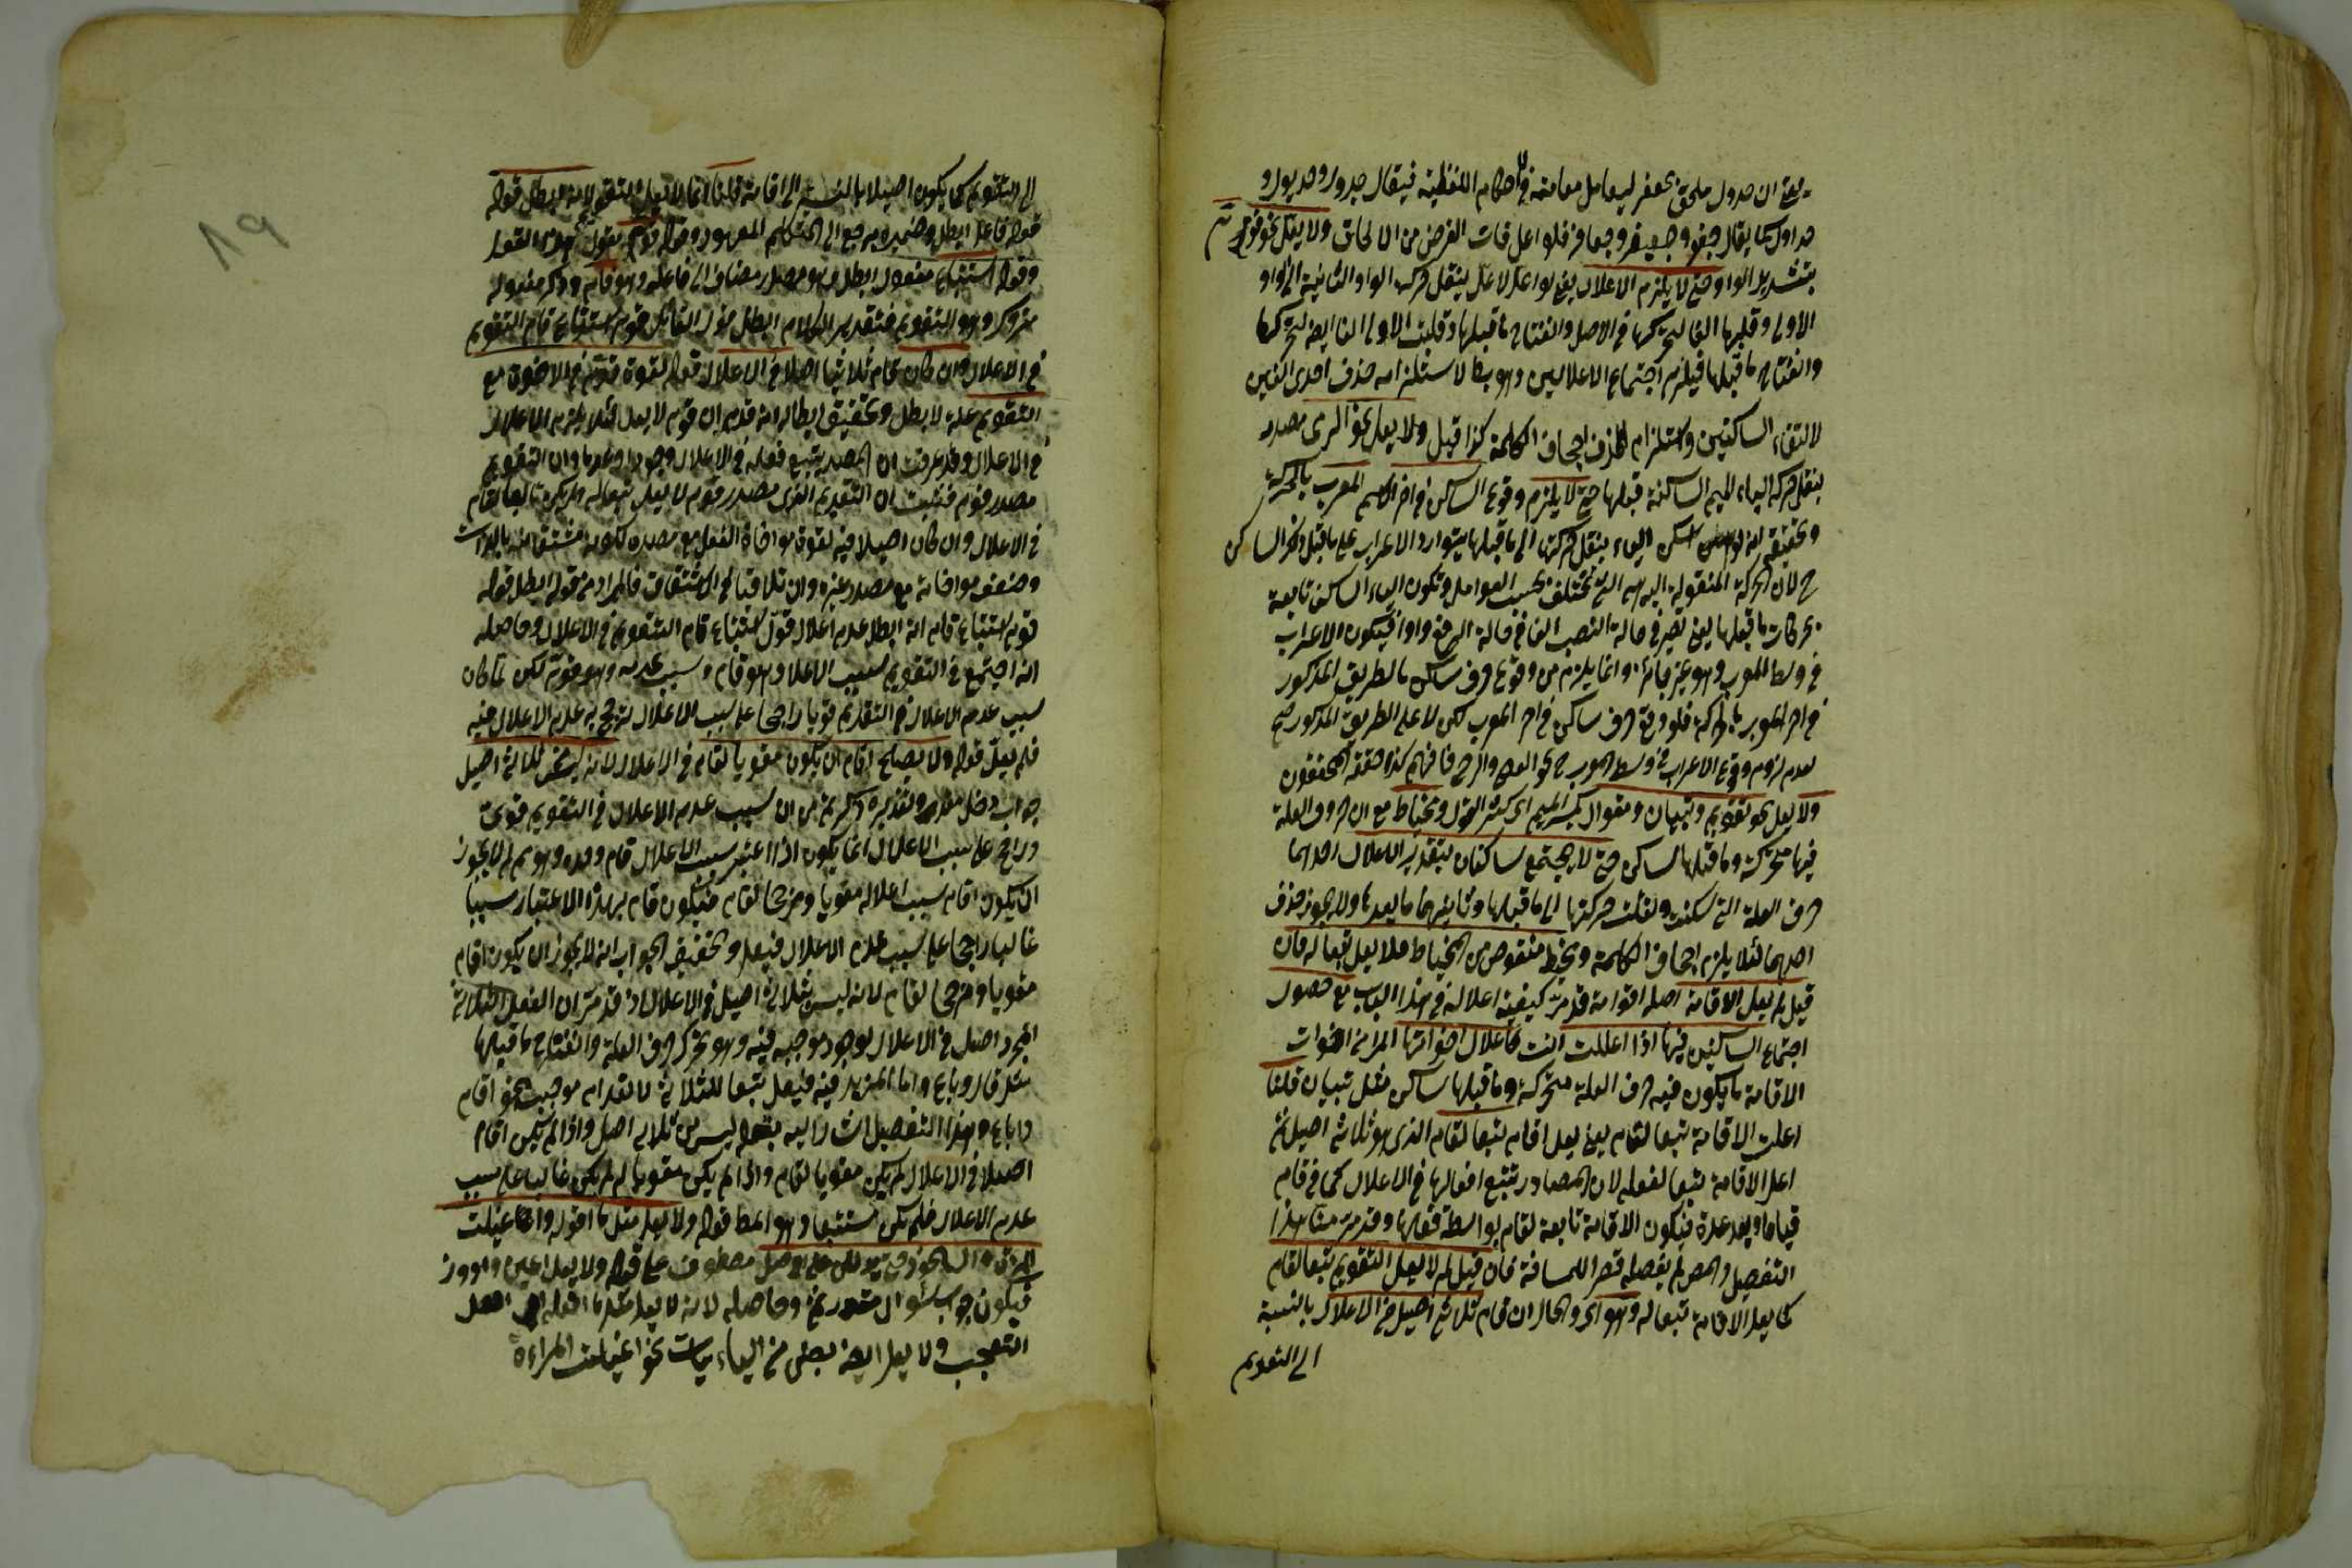 يعني ان جدول ملحق بجعفر ليعامل معاملته في الاحكام اللفظية فيقال جدول وجديول و
جداول كما يقال جعفر وجعيفر وجعافر فلو اعل فات الغرض من الالحاق ولا يعل نحو قوم
بتشديد الواو حتى لا يلزم الاعلال يعني لو اعل لاعل بنقل حركة الواو الثانية الى الواو
الاولى وقلبها الفا لتحركها في الاصل وانفتاح ما قبلها وقلبت الاولى الفا ايضا لتحركها
وانفتاح ما قبلها فيلزم اجتماع الاعلالين وهو بط لاستلزامه حذف احدى الفين
لالتقاء الساكنين واستلزام الحذف اجحاف الكلمة كذا قيل ولا يعل نحو الرمي مصدر
بنقل حركة الياء الى الميم الساكنة قبلها حتى لا يلزم وقوع الساكن في اخر الاسم المعرب بالحركة
وتحقيقه انه لو اسكن الياء بنقل حركتها الى ما قبلها يتوارد الاعراب على ما قبل ذلك الساكن
ح لان الحركة المنقولة اليه هي التي تختلف بحسب العوامل وتكون الياء الساكن تابعة
بحركات ما قبلها يعني يصير في حالة النصب الفا في حالة الرفع واوا فيكون الاعراب
في وسط المعرب وهو غير جائز وانما يلزم من وقوع حرف ساكن بالطريق المذكور
في اخر المعرب بالحركة فلو وقع حرف ساكن في اخر المعرب لكن لا على الطريق المذكور صح
لعدم لزوم وقوع الاعراب في وسط المعرب ح نحو العصا والرحى فافهم كذا حققه المحققون
ولا يعل نحو تقويم وتبيان ومقوال بكسر الميم اي كثير القول ومخياط مع ان حروف العلة
فيها متحركة وما قبلها ساكن حتى لا يجتمع ساكنان بتقدير الاعلال احدهما
حرف العلة التي سكنت ونقلت حركتها الى ما قبلها وثانيهما ما بعدها ولا يجوز حذف
احدهما لئلا يلزم اجحاف الكلمة ومخيط منقوص من المخياط فلا يعل تبعا له فان
قيل لم يعل الاقامة اصله اقوامة قد مر كيفية اعلاله في هذا الباب مع حصول
اجتماع الساكنين فيها اذا اعللت انت كاعلال اخواتها المراد من اخوات
الاقامة ما يكون فيه حرف العلة متحركة وما قبلها ساكن مثل تبيان قلنا
اعلت الاقامة تبعا لقام يعني يعل اقام تبعا لقام الذي هو ثلاثي اصيل ثم
اعل الاقامة تبعا لفعله لان المصادر يتبع افعالها في الاعلال كما في قام
قياما وبعد عدة فيكون الاقامة تابعة لقام بواسطة فعلها وقد مر منا هذا
التفصيل والمص لم يفصله قصرا للمسافة فان قيل لم لا يعل التقويم تبعا لقام
كما يعل الاقامة تبعا له وهو اي والحال ان قام ثلاثي اصيل في الاعلال بالنسبة
الى التقويم
الى التقويم كما يكون اصيلا بالنسبة الى اقامة قلنا انما لا يعل التقويم لانه ابطل قوله
قوله فاعل ابطل وضميره يرجع الى المتكلم المعهود وقوله قوم مقول هذا القول
وقوله استتباع مفعول ابطل وهو مصدر مضاف الى فاعله وهو قام وذكر مفعوله
متروك وهو التقويم فتقدير الكلام ابطل قول القائل قوم استتباع قام التقويم
في الاعلال وان كان قام ثلاثيا اصلا في الاعلال قوله لقوة قوم في الاخوة مع
التقويم علة لابطل وتحقيق ابطاله انه قد مر ان قوم لا يعل لئلا يلزم الاعلال
في الاعلال وقد عرفت ان المصدر يتبع فعله في الاعلال وجودا وعدما وان التقويم
مصدر قوم فثبت ان التقويم الذي مصدر قوم لا يعل تبعا له ولم يكن تابعا لقام
في الاعلال وان كان اصيلا فيه لقوة مواخاة الفعل مع مصدره لكونه مشتقا منه بالذات
وضعف مواخاته مع مصدر غيره وان تلاقيا في الاشتقاق فالمراد من قوله ابطل قوله
قوم استتباع قام انه ابطل عدم اعلال قوم استتباع قام التقويم في الاعلال وحاصله
انه اجتمع في التقويم سبب الاعلال وهو قام وسبب عدمه وهو قوم لكن لما كان
سبب عدم الاعلال في التقويم قويا راجحا على سبب الاعلال ترجح به عدم الاعلال فيه
فلم يعل قوله ولا يصلح اقام ان يكون مقويا لقام في الاعلال لانه ليس من ثلاثي اصيل
جواب دخل مقدر وتقديره ذكرتم من ان سبب عدم الاعلال في التقويم قوي
وراجح على سبب الاعلال انما يكون اذا اعتبر سبب الاعلال قام وحده وهو مم لم لا يجوز
ان يكون اقام سبب اعلاله مقويا ومرجحا لقام فيكون قام بهذا الاعتبار سببا
غالبا راجحا على سبب عدم الاعلال فيعل وتحقيق الجواب انه لا يجوز ان يكون اقام
مقويا ومرجحا لقام لانه ليس بثلاثي اصيل في الاعلال اذ قد مر ان الفعل الثلاثي
المجرد اصل في الاعلال لوجود موجبه فيه وهو تحرك حرف العلة وانفتاح ما قبلها
مثل قال وباع واما المزيد فيه فيعل تبعا للثلاثي لانعدام موجبه نحو اقام
واباع وبهذا التفصيل اشار اليه بقوله ليس من ثلاثي اصل واذا لم يكن اقام
اصيلا في الاعلال لم يكن مقويا لقام واذا لم يكن مقويا له لم يكن غالبا على سبب
عدم الاعلال فلم يكن مستتبعا وهو المط قوله ولا يعل مثل ما اقوله واغيلت
المرأة واستحوذ حتى يدللن على الاصل معطوف على قوله ولا يعل اعين وادور
فيكون جواب سؤال مقدر ثم وحاصله لانه لا يعل مثل ما افعله اي افعل
التعجب ولا يعل ايضا بعض من الياءيات نحو اغيلت المراءة
١٩